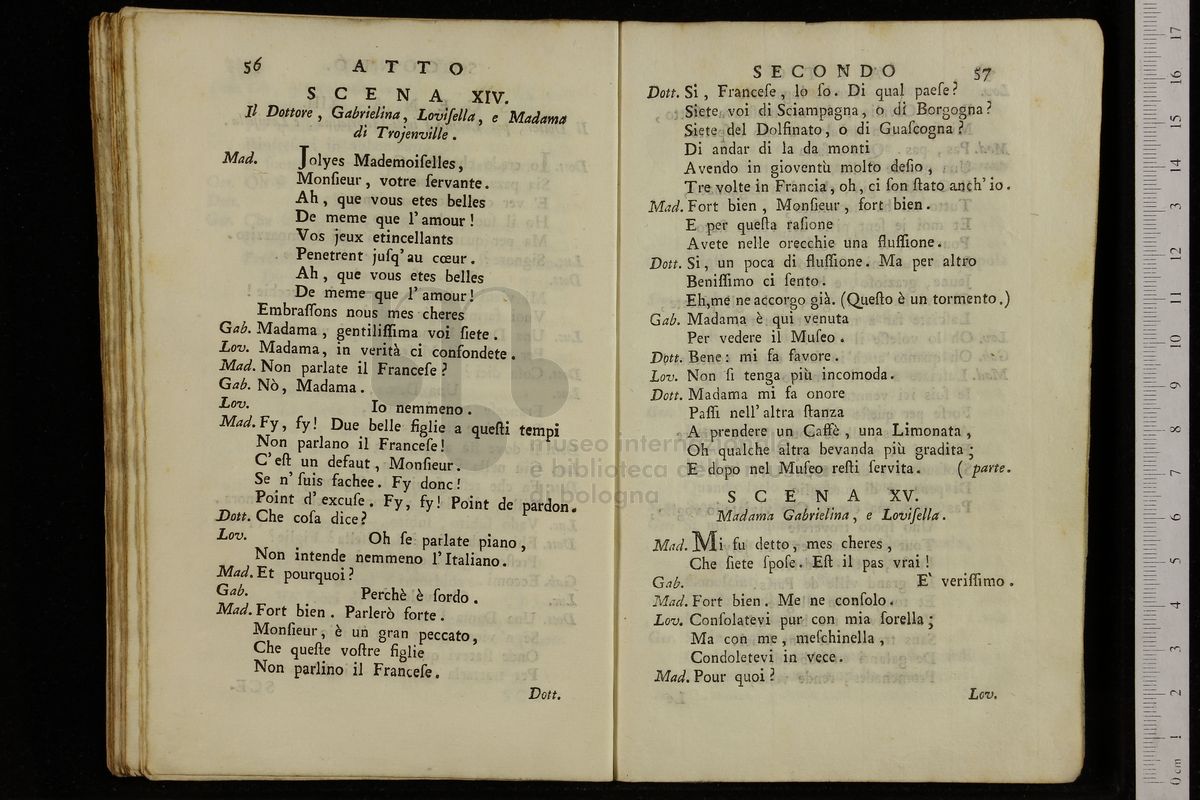 56 ATTO
SCENA XIV.
Il Dottore, Gabrielina, Loviſella, e Madama
di Trojenville.
Mad. Jolyes Mademoiſelles,
Monſieur, votre ſervante.
Ah, que vous etes belles
De meme que l'amour!
Vos jeux etincellants
Penetrent juſq'au cœur.
Ah, que vous etes belles
De meme que l'amour!
Embraſſons nous mes cheres
Gab. Madama, gentiliſſima voi ſiete.
Lov. Madama, in verità ci confondete.
Mad. Non parlate il Franceſe?
Gab. Nò, Madama.
Lov. Io nemmeno.
Mad. Fy, fy! Due belle figlie a queſti tempi
Non parlano il Franceſe!
C'eſt un defaut, Monſieur.
Se n'ſuis fachee. Fy donc!
Point d'excuſe. Fy, fy! Point de pardon.
Dott. Che coſa dice?
Lov. Oh ſe parlate piano,
Non intende nemmeno l'Italiano.
Mad. Et pourquoi?
Gab. Perchè è ſordo.
Mad. Fort bien. Parlerò forte.
Monſieur, è un gran peccato,
Che queſte voſtre figlie
Non parlino il Franceſe.
Dott.
SECONDO 57
Dott. Si, Franceſe, lo ſo. Di qual paeſe?
Siete voi di Sciampagna, o di Borgogna?
Siete del Dolfinato, o di Guaſcogna?
Di andar di la da monti
Avendo in gioventù molto deſio,
Tre volte in Francia, oh, ci ſon ſtato anch'io.
Mad. Fort bien, Monſieur, fort bien.
E per queſta raſione
Avete nelle orecchie una fluſſione.
Dott. Si, un poca di fluſſione. Ma per altro
Beniſſimo ci ſento.
Eh, me ne accorgo già. (Queſto è un tormento.)
Gab. Madama è qui venuta
Per vedere il Muſeo.
Dott. Bene: mi fa favore.
Lov. Non ſi tenga più incomoda.
Dott. Madama mi fa onore
Paſſi nell'altra ſtanza
A prendere un Caffè, una Limonata,
Oh qualche altra bevanda più gradita;
E dopo nel Muſeo reſti ſervita. (parte.
SCENA XV.
Madama Gabrielina, e Loviſella.
Mad. Mi fu detto, mes cheres,
Che ſiete ſpoſe. Eſt il pas vrai!
Gab. E' veriſſimo.
Mad. Fort bien. Me ne conſolo.
Lov. Conſolatevi pur con mia ſorella;
Ma con me, meſchinella,
Condoletevi in vece.
Mad. Pour quoi?
Lov.
museo internazionale
e biblioteca della musica
di bologna
0 cm 1 2 3 4 5 6 7 8 9 10 11 12 13 14 15 16 17